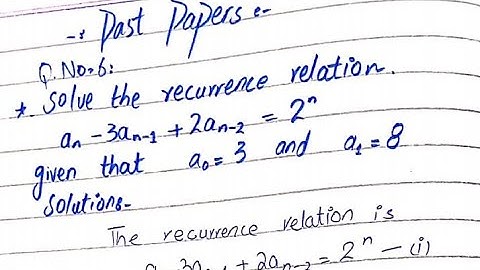 -: Past Papers :-
Q.No.6:
* Solve the recurrence relation.
aₙ - 3aₙ₋₁ + 2aₙ₋₂ = 2ⁿ
given that a₀ = 3 and a₁ = 8
Solution:-
The recurrence relation is
aₙ - 3aₙ₋₁ + 2aₙ₋₂ = 2ⁿ — (i)